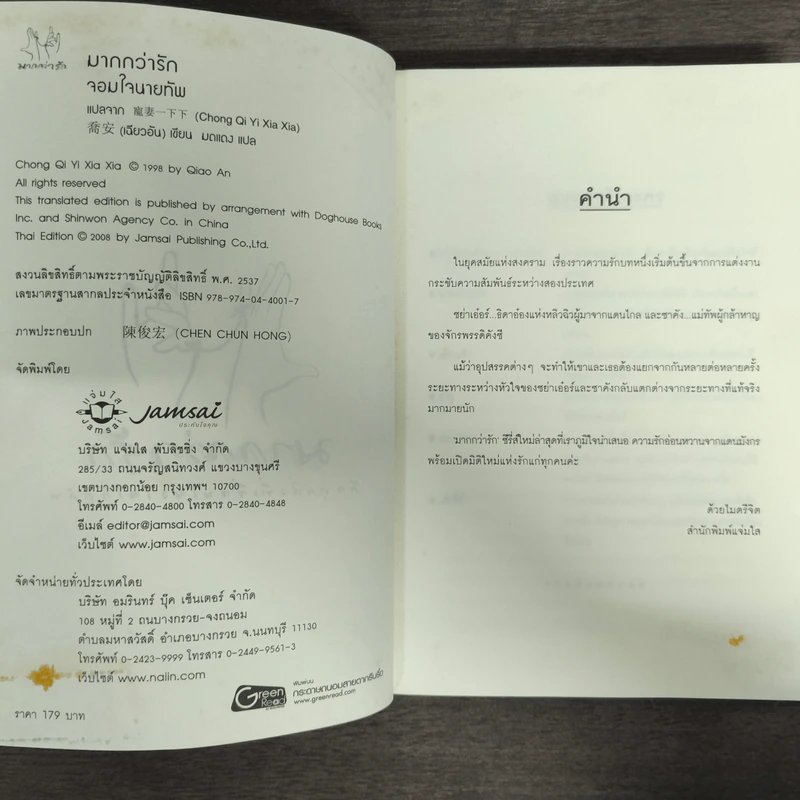 มากกว่ารัก
มากกว่ารัก
จอมใจนายทัพ
แปลจาก 寵妻一下下 (Chong Qi Yi Xia Xia)
喬安 (เฉียวอัน) เขียน มดแดง แปล
Chong Qi Yi Xia Xia © 1998 by Qiao An
All rights reserved
This translated edition is published by arrangement with Doghouse Books
Inc. and Shinwon Agency Co. in China
Thai Edition © 2008 by Jamsai Publishing Co.,Ltd.
สงวนลิขสิทธิ์ตามพระราชบัญญัติลิขสิทธิ์ พ.ศ. 2537
เลขมาตรฐานสากลประจำหนังสือ ISBN 978-974-04-4001-7
ภาพประกอบปก 陳俊宏 (CHEN CHUN HONG)
จัดพิมพ์โดย
แจ่มใส
Jamsai
Jamsai
ประทับใจคุณ
บริษัท แจ่มใส พับลิชชิ่ง จำกัด
285/33 ถนนจรัญสนิทวงศ์ แขวงบางขุนศรี
เขตบางกอกน้อย กรุงเทพฯ 10700
โทรศัพท์ 0-2840-4800 โทรสาร 0-2840-4848
อีเมล์ editor@jamsai.com
เว็บไซต์ www.jamsai.com
จัดจำหน่ายทั่วประเทศโดย
บริษัท อมรินทร์ บุ๊ค เซ็นเตอร์ จำกัด
108 หมู่ที่ 2 ถนนบางกรวย-จงถนอม
ตำบลมหาสวัสดิ์ อำเภอบางกรวย จ.นนทบุรี 11130
โทรศัพท์ 0-2423-9999 โทรสาร 0-2449-9561-3
เว็บไซต์ www.naiin.com
Green Read
พิมพ์บน
กระดาษถนอมสายตากรีนรี้ด
www.greenread.com
ราคา 179 บาท
คำนำ
ในยุคสมัยแห่งสงคราม เรื่องราวความรักบทหนึ่งเริ่มต้นขึ้นจากการแต่งงาน
กระชับความสัมพันธ์ระหว่างสองประเทศ
ซย่าเอ๋อร์...ธิดาอ๋องแห่งหลิวฉิวผู้มาจากแดนไกล และซาคัง...แม่ทัพผู้กล้าหาญ
ของจักรพรรดิคังซี
แม้ว่าอุปสรรคต่างๆ จะทำให้เขาและเธอต้องแยกจากกันหลายต่อหลายครั้ง
ระยะทางระหว่างหัวใจของซย่าเอ๋อร์และซาคังกลับแตกต่างจากระยะทางที่แท้จริง
มากมายนัก
'มากกว่ารัก' ซีรี่ส์ใหม่ล่าสุดที่เราภูมิใจนำเสนอ ความรักอ่อนหวานจากแดนมังกร
พร้อมเปิดมิติใหม่แห่งรักแก่ทุกคนค่ะ
ด้วยไมตรีจิต
สำนักพิมพ์แจ่มใส